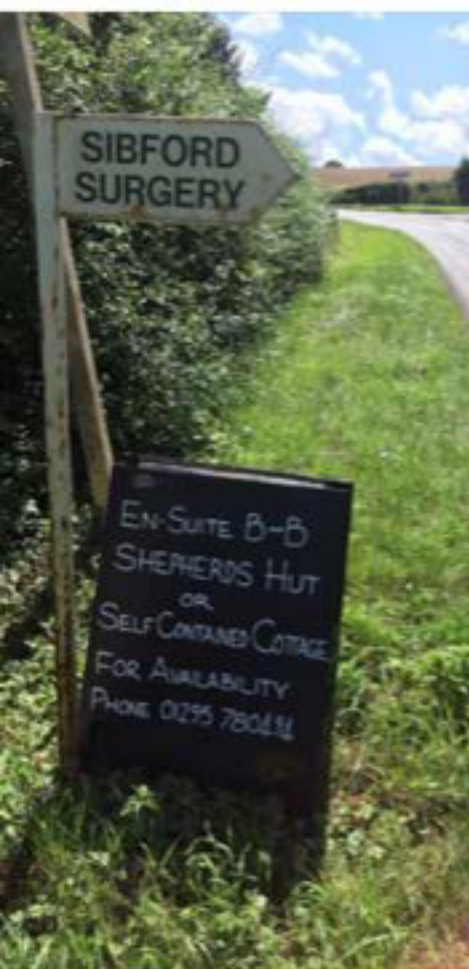 SIBFORD
SURGERY
EN-SUITE B-B
SHEPHERDS HUT
OR
SELF CONTAINED COTTAGE
FOR AVAILABILITY
PHONE 01295